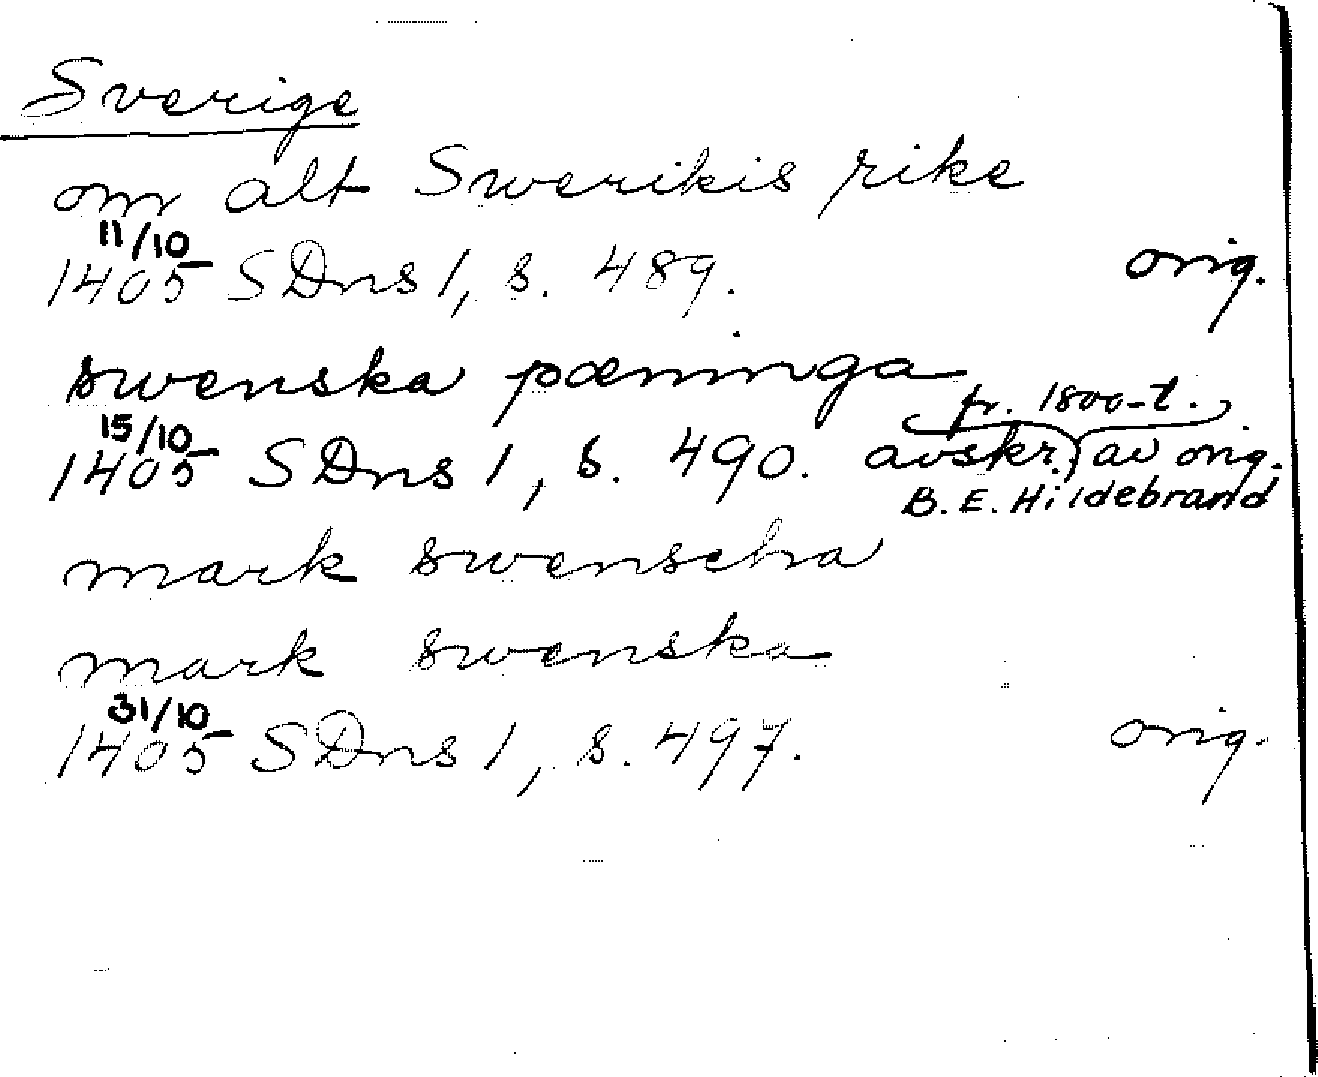 Sverige
om alt Swerikis rike
11/10
1405 SDns 1, s. 489. orig.
swenska pæninga
15/10 fr. 1800-t.
1405 SDns 1, s. 490. avskr. av orig.
B. E. Hildebrand
mark swenscha
mark swenska
31/10
1405 SDns 1, s. 497. orig.